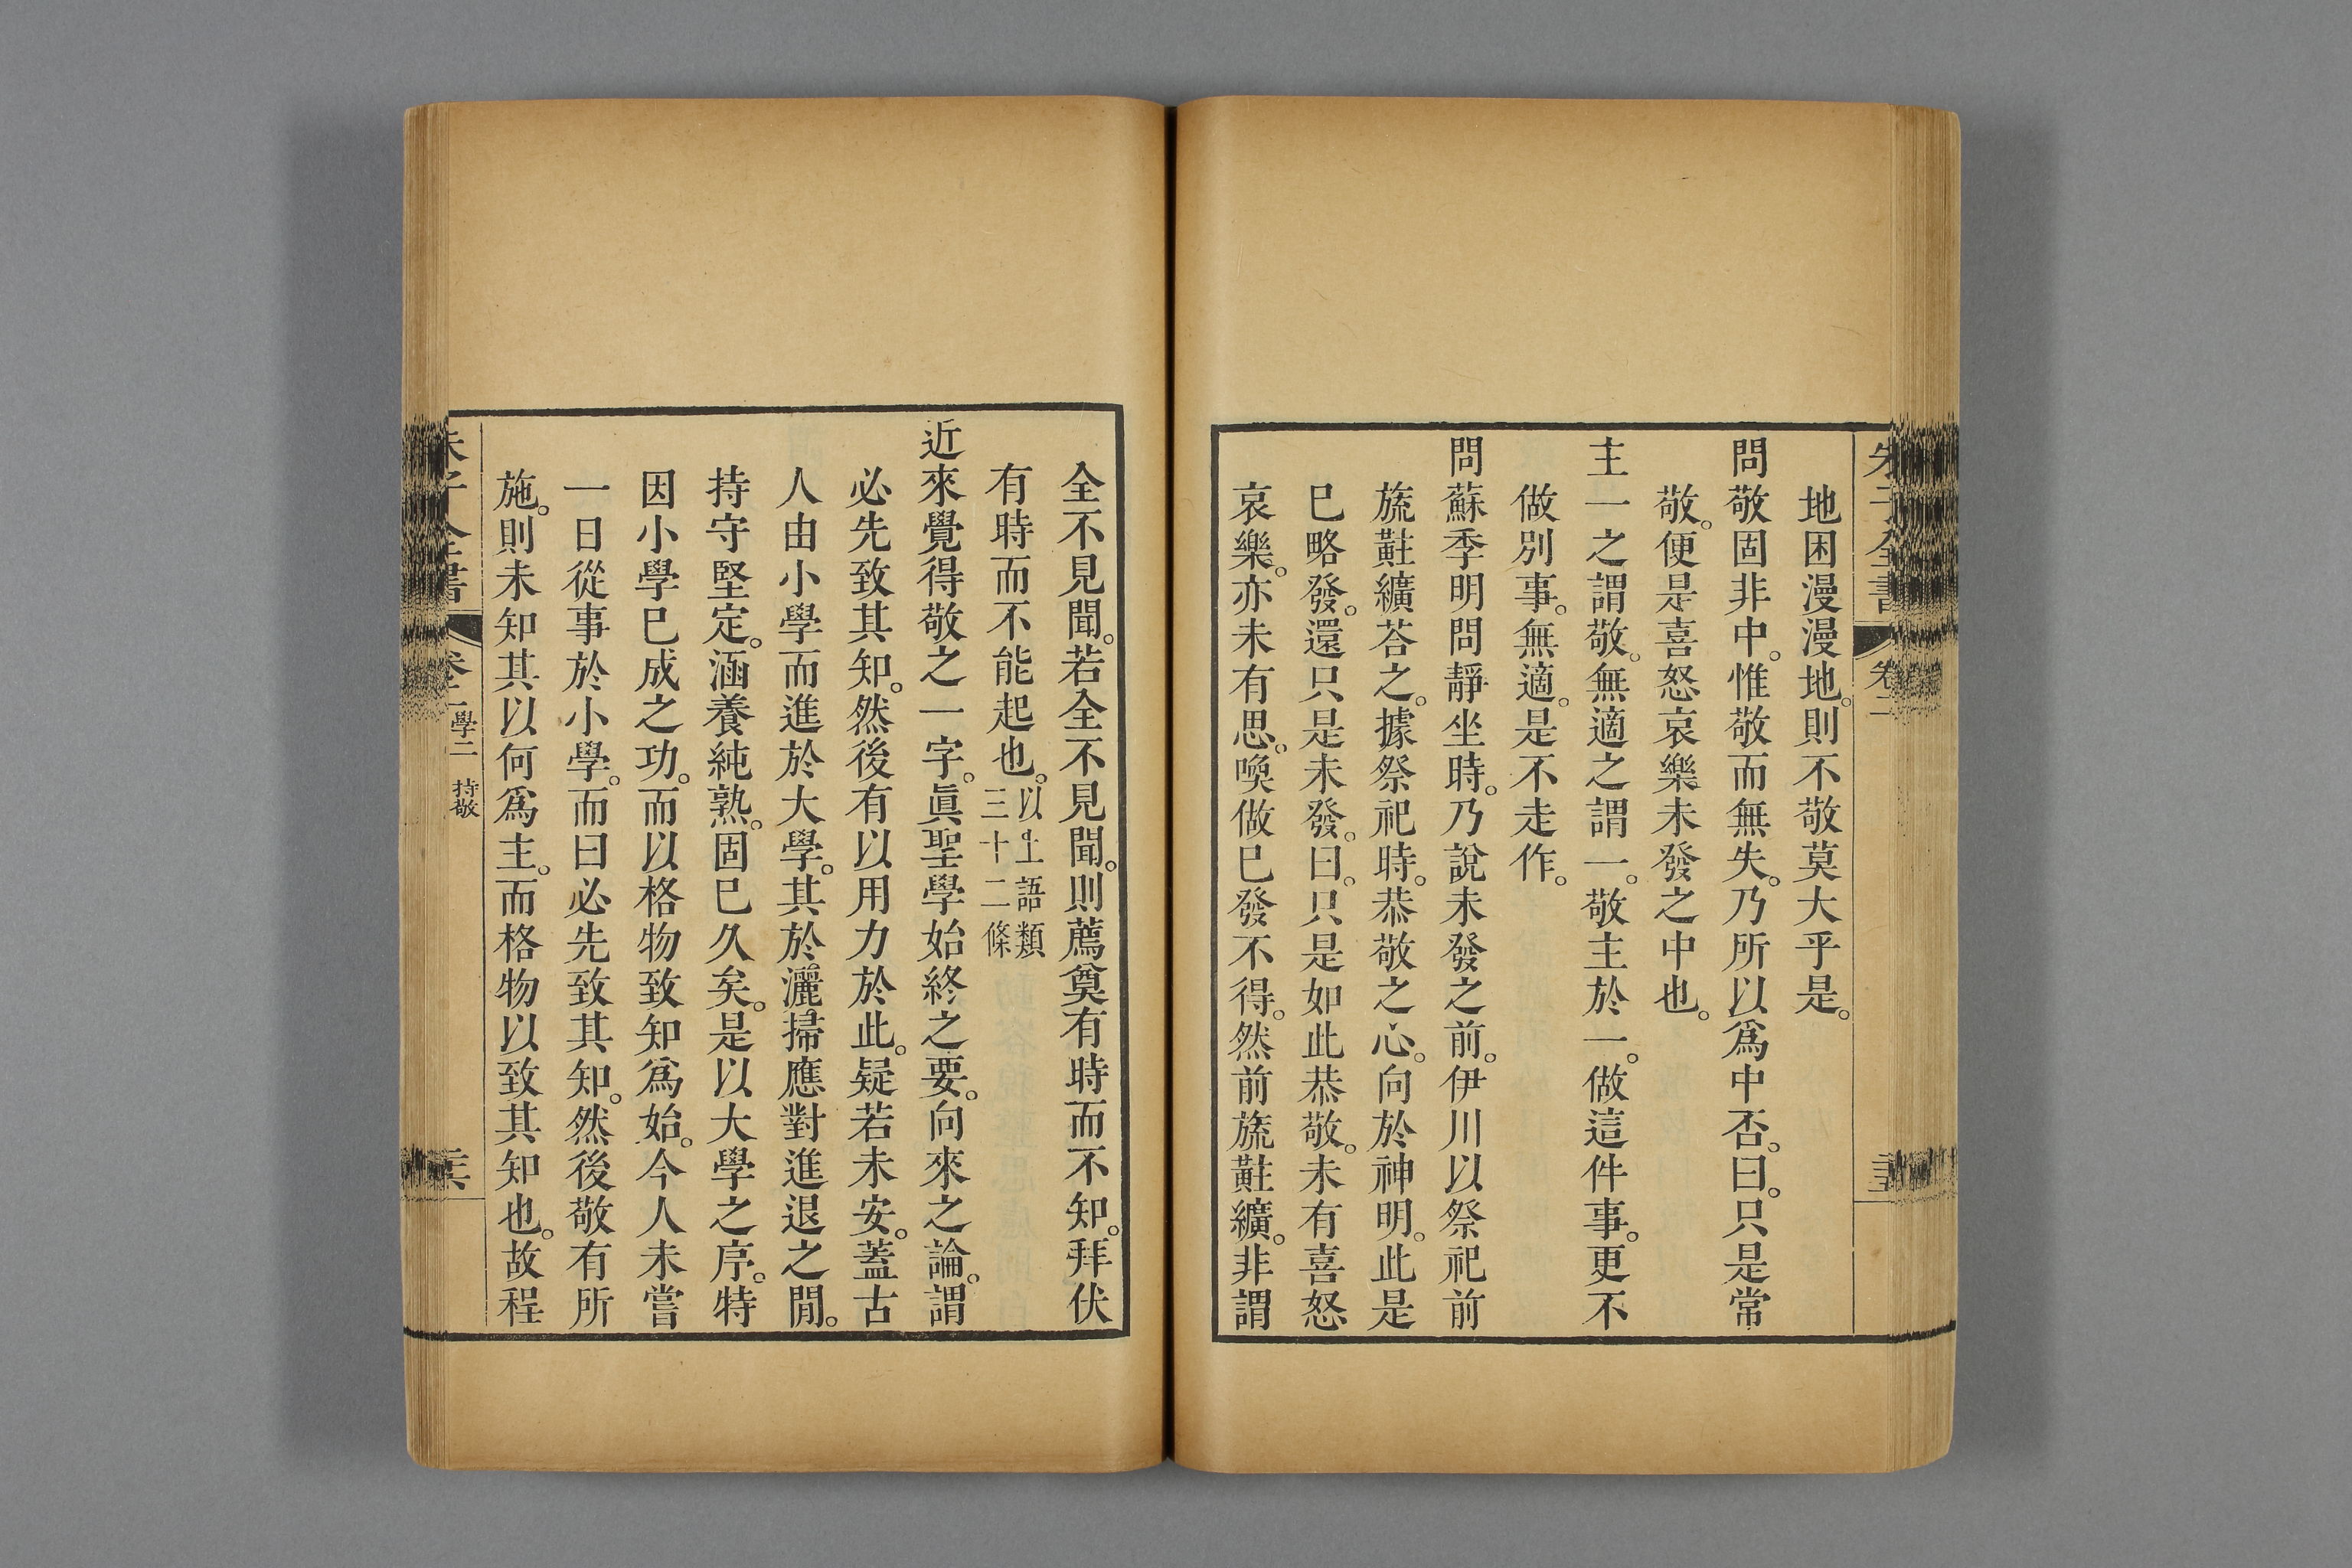 朱子全書 卷二
地困漫漫地。則不敬莫大乎是。
問敬固非中。惟敬而無失。乃所以爲中否。曰。只是常
敬。便是喜怒哀樂未發之中也。
主一之謂敬。無適之謂一。敬主於一。做這件事。更不
做別事。無適。是不走作。
問蘇季明問靜坐時。乃說未發之前。伊川以祭祀前
旒黈纊荅之。據祭祀時。恭敬之心。向於神明。此是
巳略發。還只是未發。曰。只是如此恭敬。未有喜怒
哀樂。亦未有思。喚做巳發不得。然前旒黈纊。非謂
全不見聞。若全不見聞。則薦奠有時而不知。拜伏
有時而不能起也。以上語類三十二條
近來覺得敬之一字。眞聖學始終之要。向來之論。謂
必先致其知。然後有以用力於此。疑若未安。蓋古
人由小學而進於大學。其於灑掃應對進退之閒。
持守堅定。涵養純熟。固巳久矣。是以大學之序。特
因小學巳成之功。而以格物致知爲始。今人未嘗
一日從事於小學。而曰必先致其知。然後敬有所
施。則未知其以何爲主。而格物以致其知也。故程
朱子全書 卷二 學二 持敬